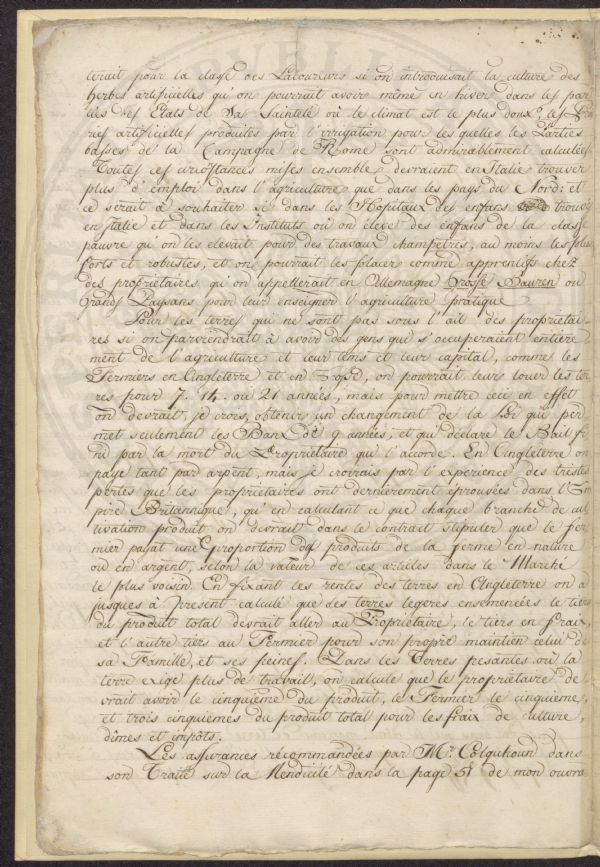 terait pour la classe des Laboureurs si on introduisait la culture des
herbes artificielles qu'on pourrait avoir même en hiver dans les par
ties des Etats de Sa Sainteté où le climat est le plus doux, les Prai
ries artificielles produites par l'irrigation pour les quelles les Parties
basses de la Campagne de Rome sont admirablement calculées.
Toutes ces circonstances mises ensemble devraient en Italie trouver
plus d'emploi dans l'agriculture que dans les pays du Nord: et
ce serait à souhaiter si dans les Hopitaux des enfans trouvés
en Italie et dans les Instituts où on éleve des enfans de la classe
pauvre qu'on les elevait pour des travaux champetres, au moins les plus
forts et robustes, et on pourrait les placer comme apprentifs chez
des proprietaires qu'on appellerait en Allemagne Grosse Bauren ou
Grands Paysans pour leur enseigner l'agriculture pratique
Pour les terres qui ne sont pas sous l'œil des proprietai-
res si on parviendrait à avoir des gens qui s'occuperaient entiere
ment de l'agriculture et leur tems et leur capital, comme les
Fermiers en Angleterre et en, on pourrait leurs louer les ter
res pour 7. 14. ou 21 années, mais pour mettre ceci en effet
on devrait, je crois, obtenir un changement de la Loi qui per
met seulement les Baux de 9 années, et qui déclare le Bail fi
ni par la mort du Propriétaire qui l'accorde. En Angleterre on
paye tant par arpent, mais je croirais par l'experience des tristes
pertes que les proprietaires ont dernièrement éprouvées dans l'Em
pire Britannique, qu'en calculant ce que chaque branche de cul
tivation produit on devrait dans le contrait stipuler que le fer
mier payat une proportion des produits de la ferme en nature
ou en argent, selon la valeur de ces articles dans le Marché
le plus voisin. En fixant les rentes des terres en Angleterre on a
jusques à Present calculé que des terres legeres ensemencées le tiers
du produit total devrait aller au Propriétaire, le tiers en fraix,
et l'autre tiers au Fermier pour son propre maintien celui de
sa Famille, et ses peines. Dans les Terres pesantes où la
terre exige plus de travail, on calcule que le propriétaire de
vrait avoir le cinquième du produit, le Fermier le cinquième,
et trois cinquièmes du produit total pour les fraix de culture,
dîmes et impôts.
Les assurances récommandées par Mr. Colquhoun dans
son Traité sur la Mendicité dans la page 51 de mon ouvra